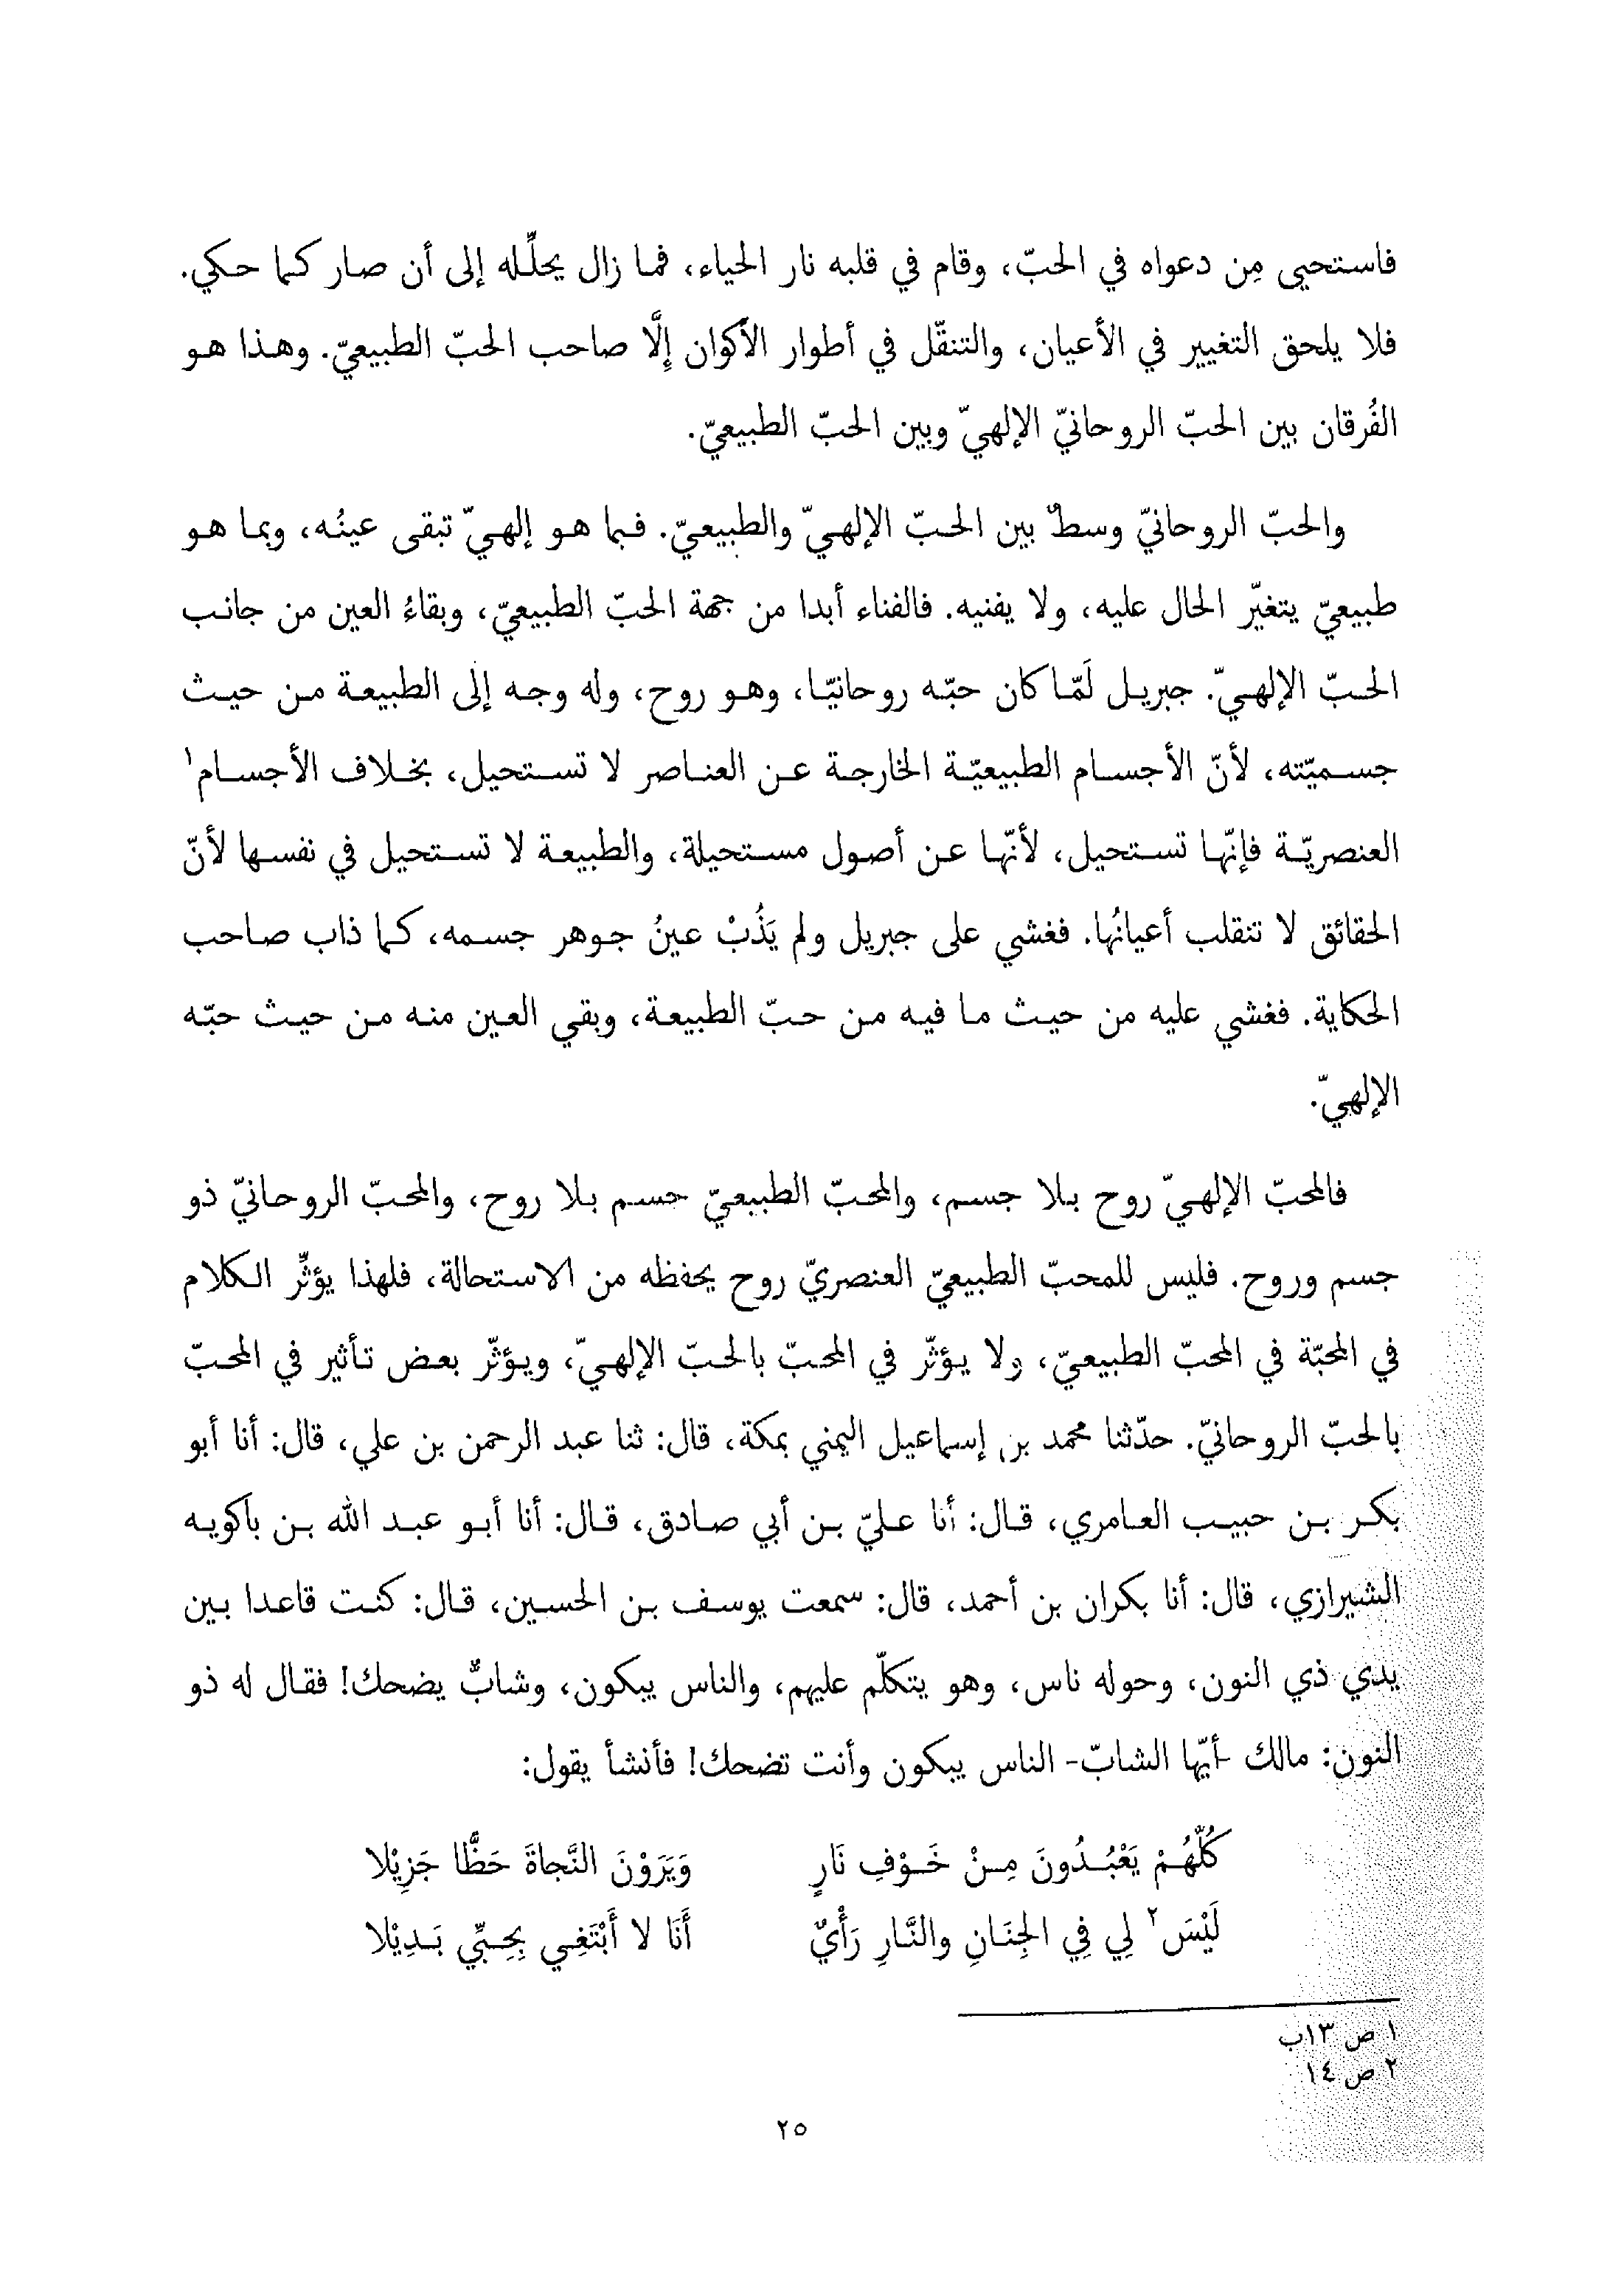 فاستحيى مِن دعواه في الحبّ، وقام في قلبه نار الحياء، فما زال يحلِّله إلى أن صار كما حكي.
فلا يلحق التغيير في الأعيان، والتنقّل في أطوار الأكوان إلَّا صاحب الحبّ الطبيعيّ. وهذا هو
الفُرقان بين الحبّ الروحانيّ الإلهيّ وبين الحبّ الطبيعيّ.
والحبّ الروحانيّ وسطٌ بين الحبّ الإلهيّ والطبيعيّ. فبما هو إلهيّ تبقى عينُه، وبما هو
طبيعيّ يتغيّر الحال عليه، ولا يفنيه. فالفناء أبدا من جهة الحبّ الطبيعيّ، وبقاءُ العين من جانب
الحبّ الإلهيّ. جبريل لَمّا كان حبّه روحانيّا، وهو روح، وله وجه إلى الطبيعة من حيث
جسميّته، لأنّ الأجسام الطبيعيّة الخارجة عن العناصر لا تستحيل، بخلاف الأجسام١
العنصريّة فإنّها تستحيل، لأنّها عن أصول مستحيلة، والطبيعة لا تستحيل في نفسها لأنّ
الحقائق لا تنقلب أعيانُها. فغشي على جبريل ولم يَذُبْ عينُ جوهر جسمه، كما ذاب صاحب
الحكاية. فغشي عليه من حيث ما فيه من حبّ الطبيعة، وبقي العين منه من حيث حبّه
الإلهيّ.
فالمحبّ الإلهيّ روح بلا جسم، والمحبّ الطبيعيّ جسم بلا روح، والمحبّ الروحانيّ ذو
جسم وروح. فليس للمحبّ الطبيعيّ العنصريّ روح يحفظه من الاستحالة، فلهذا يؤثِّر الكلام
في المحبّة في المحبّ الطبيعيّ، ولا يؤثّر في المحبّ بالحبّ الإلهيّ، ويؤثّر بعض تأثير في المحبّ
بالحبّ الروحانيّ. حدّثنا محمد بن إسماعيل اليمني بمكة، قال: ثنا عبد الرحمن بن علي، قال: أنا أبو
بكر بن حبيب العامري، قال: أنا عليّ بن أبي صادق، قال: أنا أبو عبد الله بن باكويه
الشيرازي، قال: أنا بكران بن أحمد، قال: سمعت يوسف بن الحسين، قال: كنت قاعدا بين
يدي ذي النون، وحوله ناس، وهو يتكلّم عليهم، والناس يبكون، وشابٌّ يضحك! فقال له ذو
النون: مالك -أيّها الشابّ- الناس يبكون وأنت تضحك! فأنشأ يقول:
كُلُّهُمْ يَعْبُدُونَ مِنْ خَوْفِ نَارٍ وَيَرَوْنَ النَّجاةَ حَظًّا جَزِيْلا
لَيْسَ٢ لِي فِي الجِنَانِ والنَّارِ رَأْيٌ أَنَا لا أَبْتَغِي بِحِبِّي بَدِيْلا
١ ص ١٣ب
٢ ص ١٤
٢٥